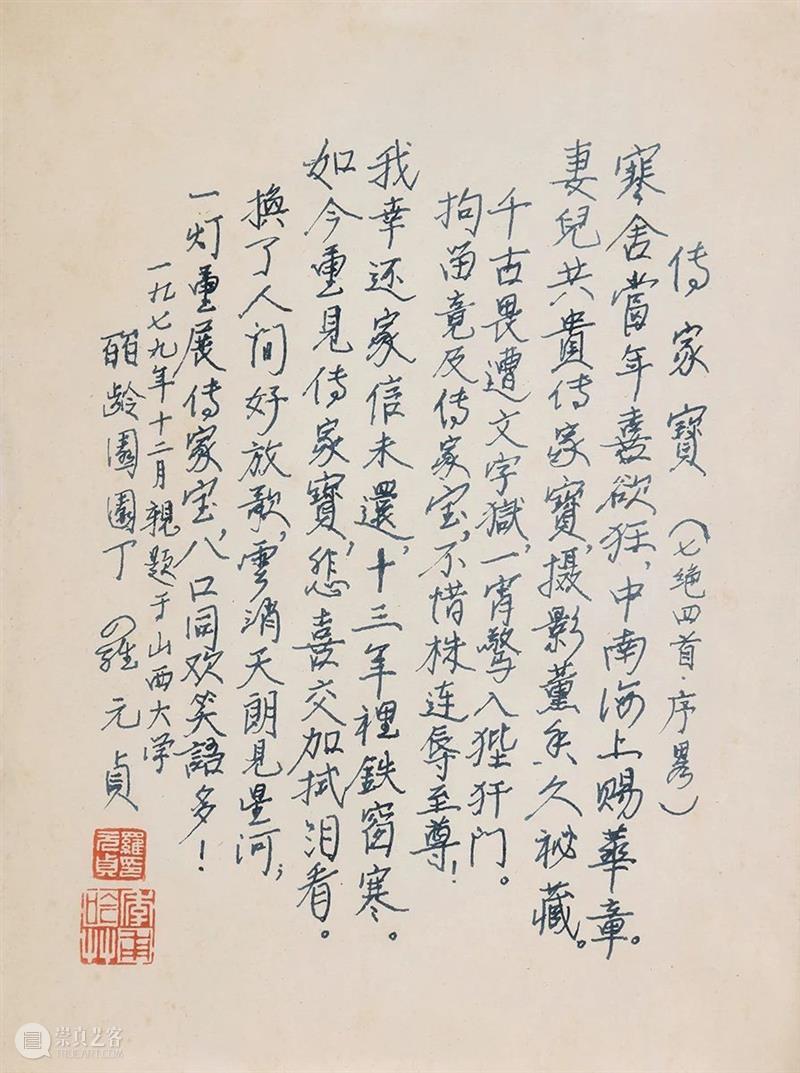 傳家寶（七绝四首·序畧）
寒舍當年喜欲狂，中南海上赐華章。
妻兒共貴傳家寶，摄影薰香久祕藏。
千古畏遭文字獄，一宵驚入狴犴門。
拘留竟及傳家宝，不惜株连辱至尊！
我幸还家信未還，十三年裡鉄窗寒。
如今重見傳家寶，悲喜交加拭泪看。
換了人间好放歌，雲消天朗見星河；
一灯重展傳家宝，八口同欢笑語多！
一九七九年十二月親题于山西大学
皕龄園園丁 羅元貞
羅元貞印
崇真艺客
TRUEART.COM